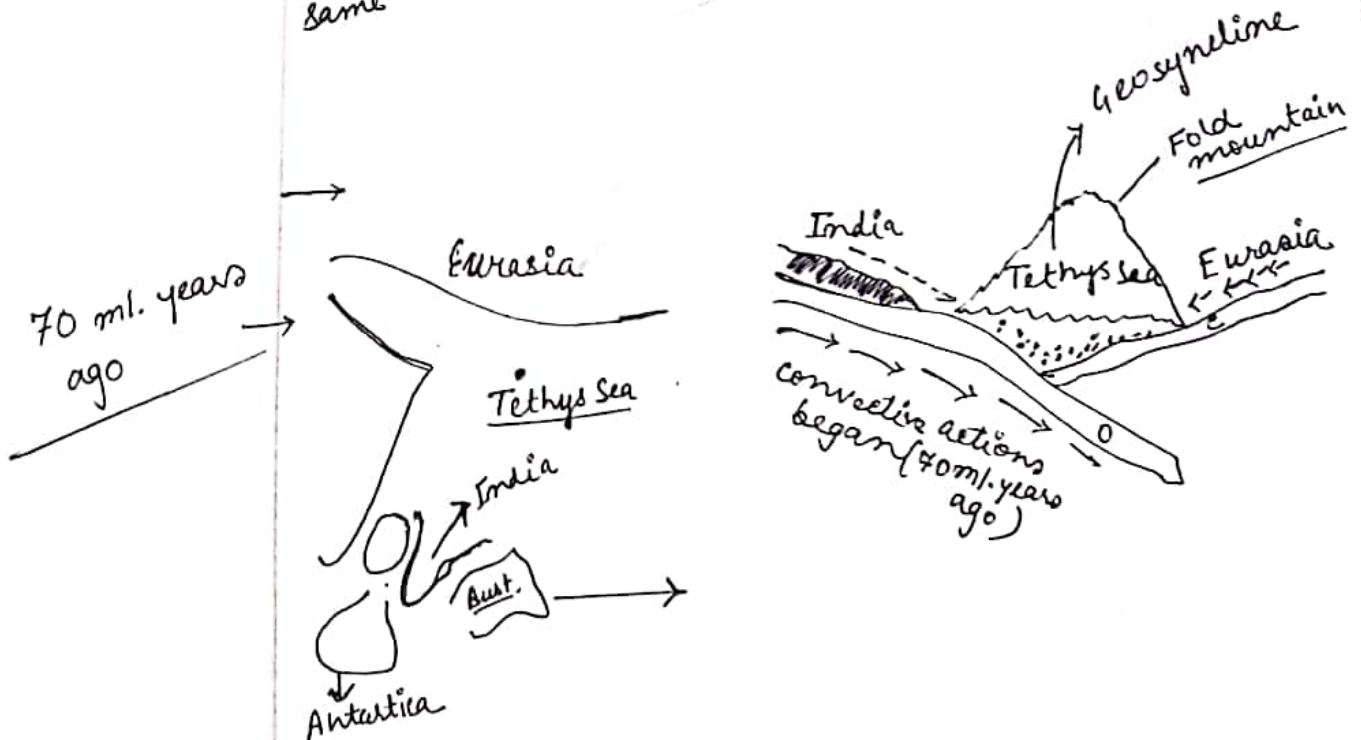 same
70 ml. years
ago
Eurasia
Tethys Sea
India
Aust.
Antartica
Geosyncline
Fold
mountain
India
Tethys Sea
Eurasia
convective actions
began (70 ml. years
ago)
O